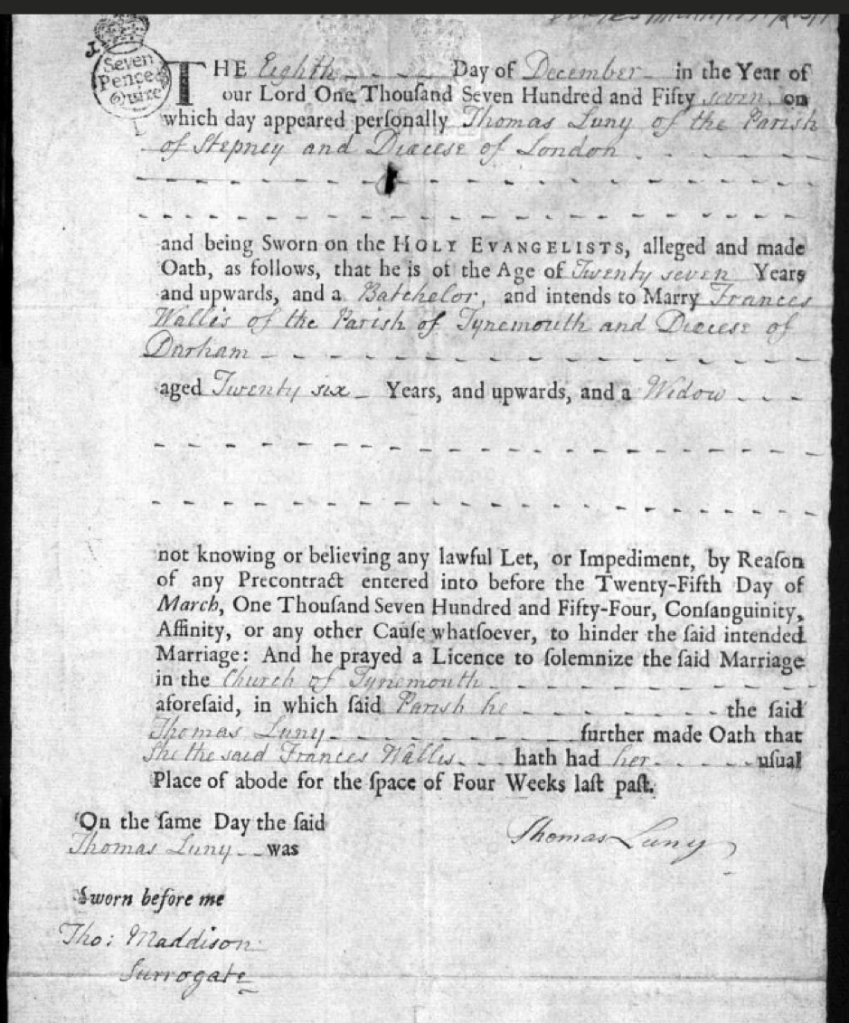 Seven
Pence
Quire
THE Eighth Day of December in the Year of
our Lord One Thouſand Seven Hundred and Fifty seven on
which day appeared perſonally Thomas Luny of the Parish
of Stepney and Diocese of London
and being Sworn on the HOLY EVANGELISTS, alleged and made
Oath, as follows, that he is of the Age of Twenty seven Years
and upwards, and a Batchelor, and intends to Marry Frances
Wallis of the Parish of Tynemouth and Diocese of
Durham
aged Twenty six Years, and upwards, and a Widow
not knowing or believing any lawful Let, or Impediment, by Reaſon
of any Precontract entered into before the Twenty-Fifth Day of
March, One Thouſand Seven Hundred and Fifty-Four, Conſanguinity,
Affinity, or any other Cauſe whatſoever, to hinder the ſaid intended
Marriage: And he prayed a Licence to ſolemnize the ſaid Marriage
in the Church of Tynemouth
aforeſaid, in which ſaid Parish he the ſaid
Thomas Luny further made Oath that
she the said Frances Wallis hath had her uſual
Place of abode for the ſpace of Four Weeks laſt paſt.
On the ſame Day the ſaid
Thomas Luny was
Thomas Luny
Sworn before me
Tho: Maddison
Surrogate